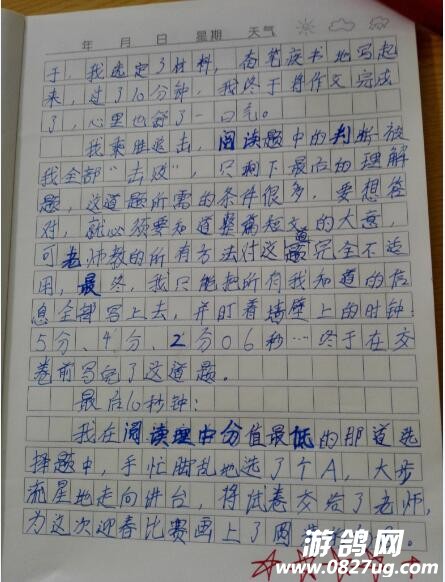 年 月 日 星期 天气
于,我选定了材料,奋笔疾书地写起
来,过了10分钟,我终于将作文完成
了,心里也舒了一口气。
我乘胜追击,阅读题中的判断被
我全部“击毙”,只剩下最后的理解
题,这道题所需的条件很多,要想答
对,就必须要知道整篇短文的大意,
可老师教的所有方法对这道题完全不适
用,最终,我只能把所有我知道的信
息全部写上去,并盯着墙壁上的时钟:
5分、4分、2分06秒…终于在交
卷前写完了这道题。
最后10秒钟:
我在阅读题中分值最低的那道选
择题中,手忙脚乱地选了个A,大步
流星地走向讲台,将试卷交给了老师,
为这次迎春比赛画上了圆
游鸽网
www.0827ug.com